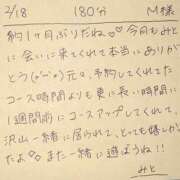 2/18 180分 M様
約1ヶ月ぶりだね♡♡ 今日もみと
に会いに来てくれて本当にありが
とう(o˘◡˘o) 元々、予約してくれた
コース時間よりも更に長い時間に
1週間前にコースアップしてくれて、
沢山一緒に居られて、とっても嬉しか
ったよ♡♡ また一緒に遊ぼうね!!
みと